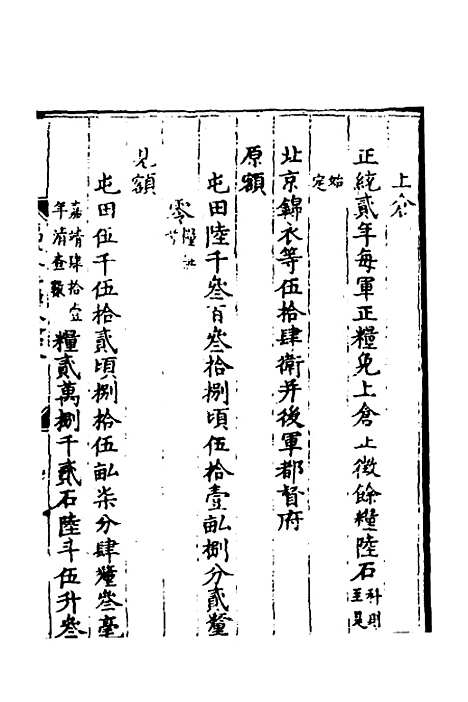 上倉
正統貳年每軍正糧免上倉止徵餘糧陸石科則至是
始定
北京錦衣等伍拾肆衛并後軍都督府
原額
屯田陸千叁百叁拾捌頃伍拾壹畝捌分貳釐
零糧
見額
屯田伍千伍拾貳頃捌拾伍畝柒分肆釐叁毫
嘉靖肆拾壹年清查數糧貳萬捌千貳石陸斗伍升叁